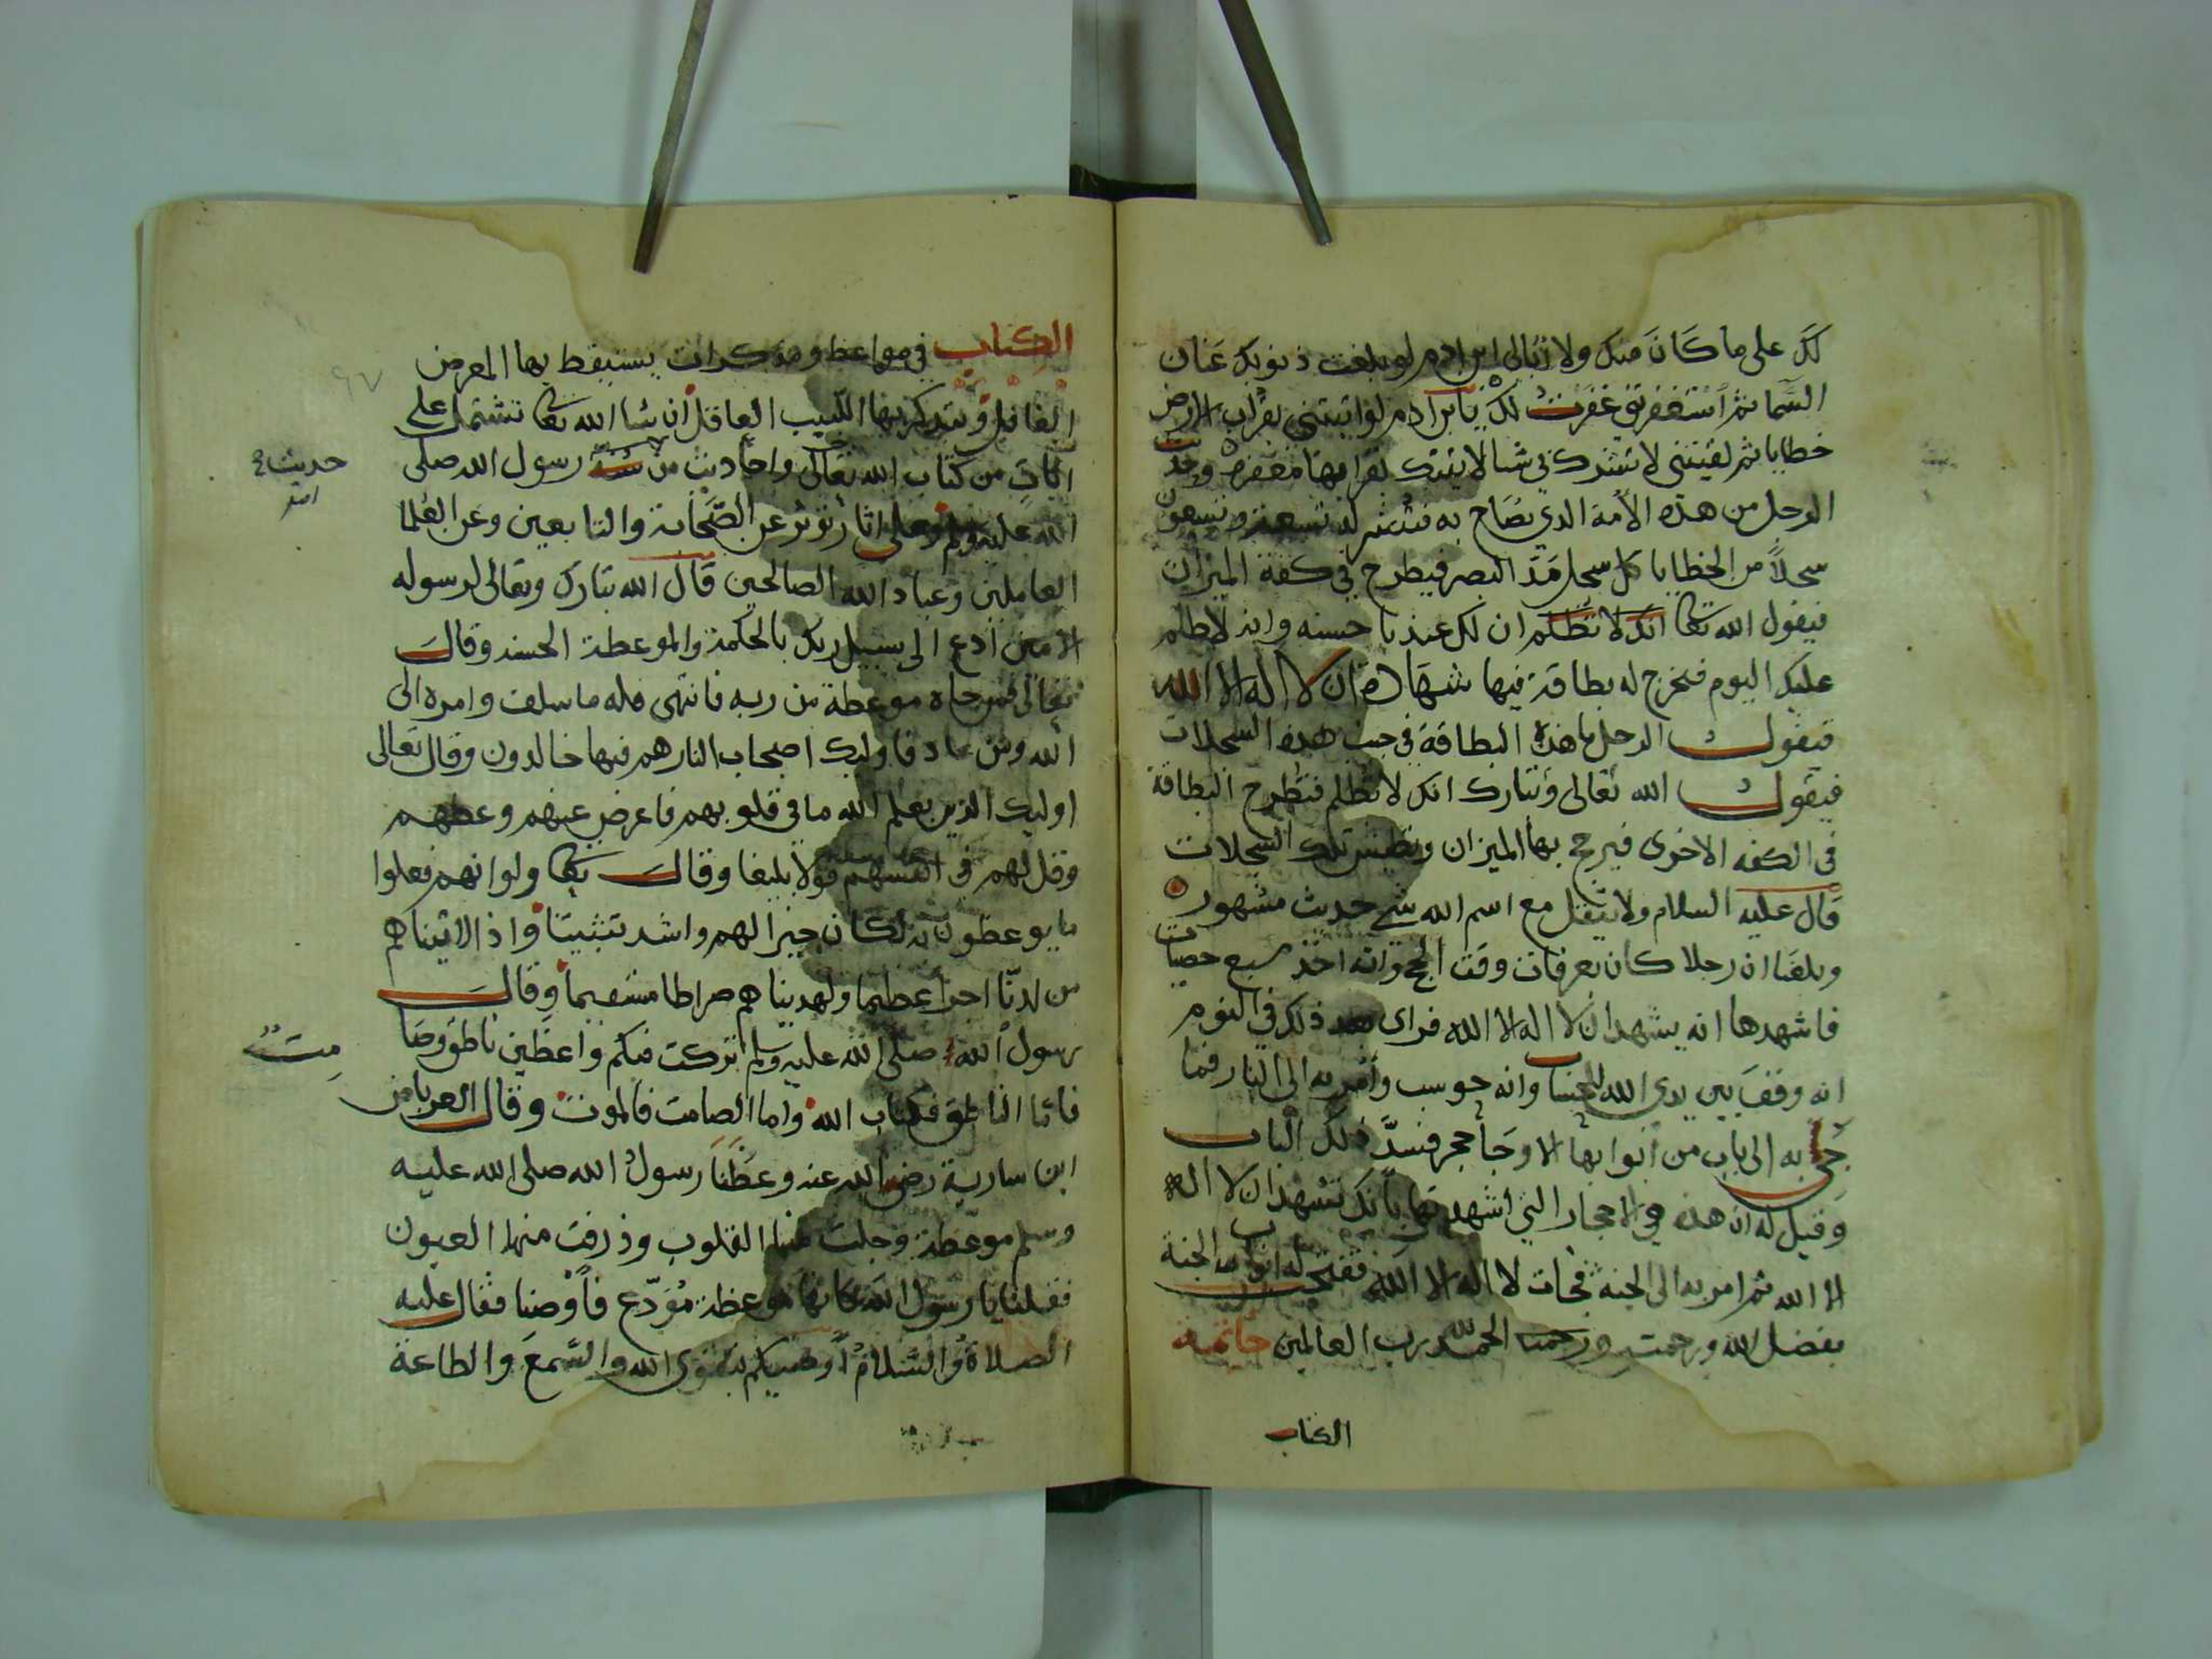 لك على ما كان منك ولا أبالي ابن ادم لو بلغت ذنوبك عنان
السما ثم استغفرتني غفرت لك يا ابن ادم لو اتيتني بقراب الارض
خطايا ثم لقيتني لا تشرك بي شيا لاتيتك بقرابها مغفرة وحديث
الرجل من هذه الأمة الذي يصاح به فينشر له تسعة وتسعون
سجلاً من الخطايا كل سجل مد البصر فيطرح في كفة الميزان
فيقول الله تعا انك لا تظلم ان لك عندنا حسنه وانه لا ظلم
عليك اليوم فتخرج له بطاقة فيها شهادة ان لا اله الا الله
فيقول الرجل ما هذه البطاقة في جنب هذه السجلات
فيقول الله تعالى وتبارك انك لا تظلم فتطرح البطاقة
في الكفه الاخرى فيرجح بها الميزان وتطيش تلك السجلات
قال عليه السلام ولا يثقل مع اسم الله شي حديث مشهور
وبلغنا ان رجلا كان بعرفات وقت الحج وانه اخذ سبع حصيات
فاشهدها انه يشهد ان لا اله الا الله فراى بعد ذلك في النوم
انه وقف بين يدي الله للحساب وانه حوسب وأمر به الى النار فما
جي به الى باب من أبوابها الا وجا حجر فسدّ ذلك الباب
وقيل له ان هذه هي الاحجار التي اشهدتها بانك تشهد ان لا اله
الا الله ثم امر به الى الجنة فجات لا اله الا الله ففتحت له ابواب الجنة
بفضل الله ورحمته والحمد لله رب العالمين خاتمة
الكتاب
الكتاب في مواعظ ومذكرات يستيقظ بها المعرض
الغافل ويتذكر بها اللبيب العاقل ان شا الله تعا تشتمل على
ايات من كتاب الله تعالى واحاديث من سنة رسول الله صلى
الله عليه وسلم وعلى اثار تؤثر عن الصحابة والتابعين وعن العلما
العاملين وعباد الله الصالحين قال الله تبارك وتعالى لرسوله
الامين ادع الى سبيل ربك بالحكمة والموعظة الحسنه وقال
تعالى فمن جاه موعظة من ربه فانتهى فله ما سلف وامره الى
الله ومن عاد فاوليك اصحاب النار هم فيها خالدون وقال تعالى
اوليك الذين يعلم الله ما في قلوبهم فاعرض عنهم وعظهم
وقل لهم في انفسهم قولا بليغا وقال تعا ولو انهم فعلوا
ما يوعظون به لكان خيرا لهم واشد تثبيتا واذا لاتيناهم
من لدنّا اجرا عظيما ولهديناهم صراطا مستقيما وقال
رسول الله صلى الله عليه وسلم تركت فيكم واعظين ناطق وصا
مت
فاما الناطق فكتاب الله واما الصامت فالموت وقال العرباض
ابن سارية رضي الله عنه وعظنا رسول الله صلى الله عليه
وسلم موعظة وجلت منها القلوب وذرفت منها العيون
فقلنا يا رسول الله كانها موعظة مُوَدّع فأوصنا فقال عليه
الصلاة والسلام أوصيكم بتقوى الله والسمع والطاعة
حديث